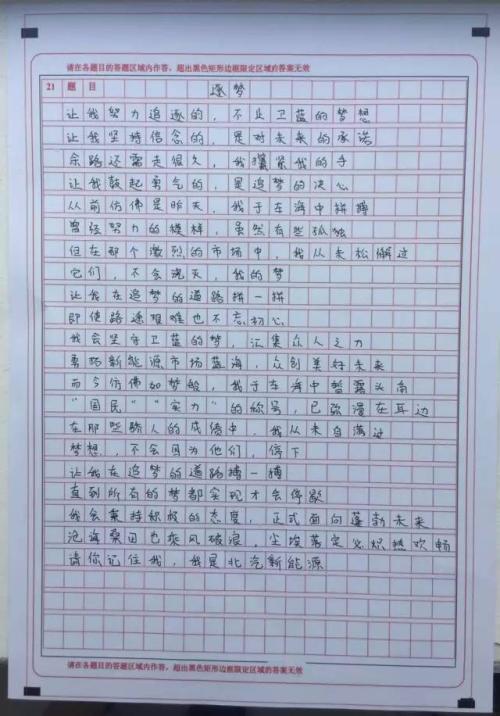 请在各题目的答题区域内作答，超出黑色矩形边框限定区域的答案无效
21 题目 逐梦
让我努力追逐的，不止卫蓝的梦想
让我坚持信念的，是对未来的承诺
余路还需走很久，我攥紧我的手
让我鼓起勇气的，是追梦的决心
从前仿佛是昨天，我于在海中拼搏
曾经努力的模样，虽然有些孤独
但在那个激烈的市场中，我从未松懈过
它们，不会浇灭，我的梦
让我在追梦的道路拼一拼
即使路途艰难也不忘初心
我会坚守卫蓝的梦，汇集众人之力
勇拓新能源市场蓝海，众创美好未来
而今仿佛如梦般，我于在海中暂露头角
“国民”“实力”的称号，已弥漫在耳边
在那些骄人的成绩中，我从未自满过
梦想，不会因为他们，停下
让我在追梦的道路搏一搏
直到所有的梦都实现才会停歇
我会秉持积极的态度，正式面向蓬勃未来
沧海桑田也乘风破浪，尘埃落定必炽热欢畅
请你记住我，我是北汽新能源
请在各题目的答题区域内作答，超出黑色矩形边框限定区域的答案无效